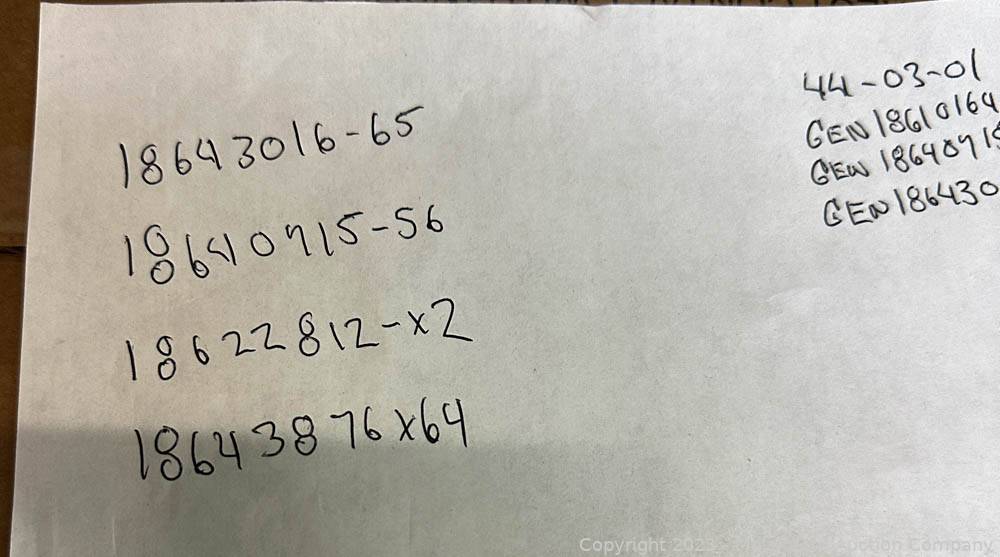 18643016-65
18640715-56
18622812-x2
18643876x64
44-03-01
GEN18610164
GEN18640715
GEN186430
Copyright 2023
ction Company